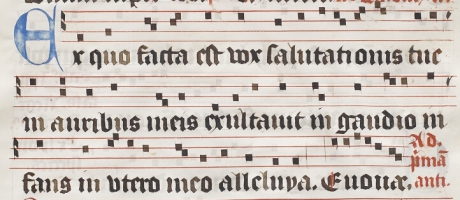 Ex quo facta est vox salutationis tue
in auribus meis exultauit in gaudio in
fans in vtero meo alleluya. Euouae.
Ad.
primā
anti.